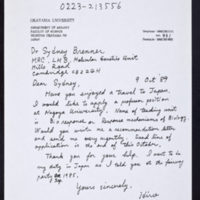 0223-213556
OKAYAMA UNIVERSITY
DEPARTMENT OF BIOLOGY
FACULTY OF SCIENCE
JAPAN
Dr Sydney Brenner
MRC, LMB, Molecular Genetics Unit
Hills Road
Cambridge CB2 2QH
9 Oct 89
Dear Sydney,
Have you enjoyed a travel to Japan.
I would like to apply a professor position
at Nagoya University. Name of teaching unit
is B.S response or Response mechanisms of Biology.
Would you write me a recommendation letter
and send me very urgently. Dead line of
application is the end of this October.
Thank you for your help. I want to do
my duty in Japan as I told you at the farewell
party on 1985.
Yours sincerely,